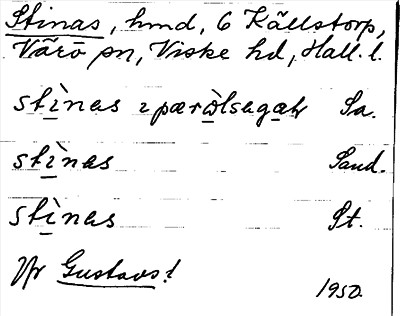 Stinas, hmd, 6 Källstorp,
Värö sn, Viske hd, Hall. l.
stìnas Sa.
stìnas Sand.
stìnas St.
Jfr Gustavs!
1950.